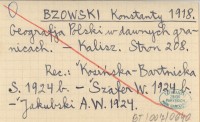 BZOWSKI Konstanty 1918.
Geografja Polski w dawnych gra-
nicach. - Kalisz. Stron 208.
Rec.: "Kosińska-Bartnicka
S. 1924 b. - Szafer W. 1924 b.
- "Jakubski A. W. 1924.